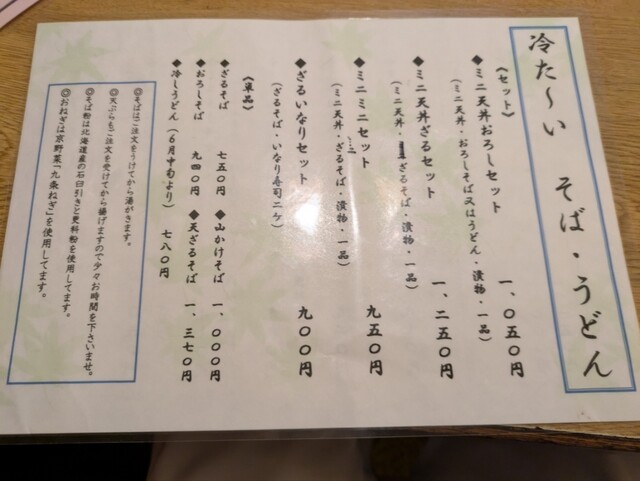 冷た〜い　そば・うどん
《セット》
◆ミニ天丼おろしセット　一、〇五〇円
（ミニ天丼・おろしそば又はうどん・漬物・一品）
◆ミニ天丼ざるセット　一、二五〇円
（ミニ天丼・ざるそば・漬物・一品）
◆ミニミニセット　九五〇円
（ミニ天丼・ミニざるそば・漬物・一品）
◆ざるいなりセット　九〇〇円
（ざるそば・いなり寿司二ケ）
《単品》
◆ざるそば　七五〇円　◆山かけそば　一、〇〇〇円
◆おろしそば　九四〇円　◆天ざるそば　一、三七〇円
◆冷しうどん（６月中旬より）　七八〇円
◎そばはご注文をうけてから湯がきます。
◎天ぷらもご注文を受けてから揚げますので少々お時間を下さいませ。
◎そば粉は北海道産の石臼引きと更科粉を使用してます。
◎おねぎは京野菜「九条ねぎ」を使用してます。